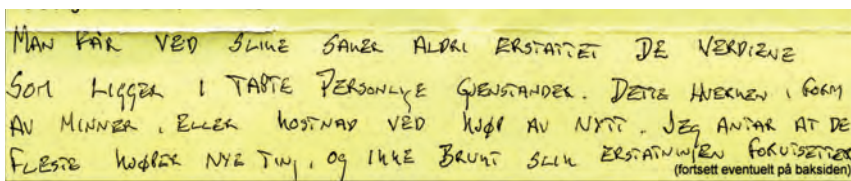 MAN FÅR VED SLIKE SAKER ALDRI ERSTATTET DE VERDIENE
SOM LIGGER I TAPTE PERSONLIGE GJENSTANDER. DETTE HVERKEN I FORM
AV MINNER, ELLER KOSTNAD VED KJØP AV NYTT. JEG ANTAR AT DE
FLESTE KJØPER NYE TING, OG IKKE BRUKT SLIK ERSTATNINGEN FORUTSETTER
(fortsett eventuelt på baksiden)